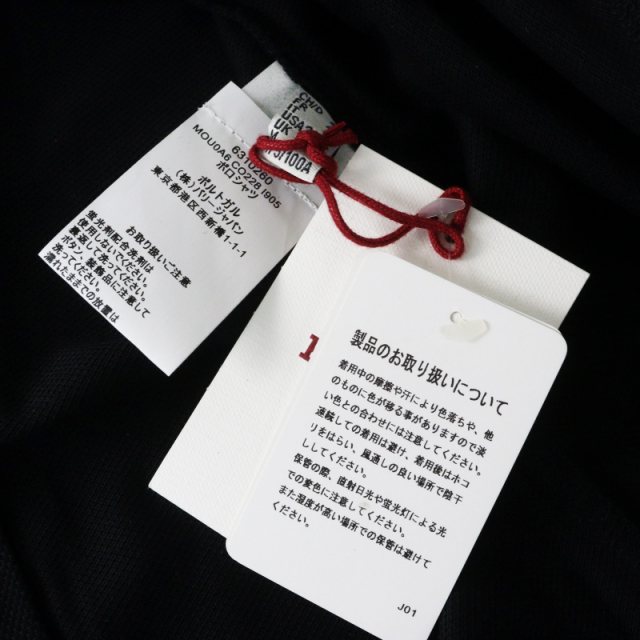 CH/D
IT
USA
UK
5/100A
6310260
MOU0A6 CO228 1805
ポロシャツ
ポルトガル
(株)バリージャパン
東京都港区西新橋1-1-1
お取り扱いご注意
蛍光剤配合洗剤は
使用しないでください。
裏返して洗ってください。
ボタン、装飾品に注意して
洗ってください。
濡れたままでの放置は
1
製品のお取り扱いについて
着用中の摩擦や汗により色落ちや、他
のものに色が移る事がありますので淡
い色との合わせには注意してください。
連続しての着用は避け、着用後はホコ
リをはらい、風通しの良い場所で陰干
ししてください。
保管の際、直射日光や蛍光灯による光
での変色に注意してください。
また湿度が高い場所での保管は避けて
ください。
J01